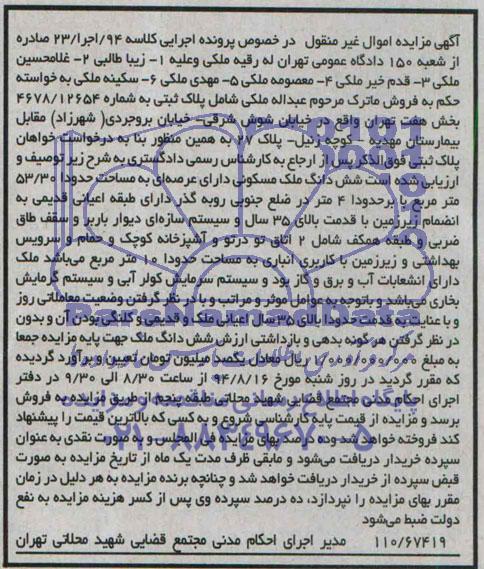 آگهی مزایده اموال غیر منقول در خصوص پرونده اجرایی کلاسه ۹۴/اجرا/۲۳ صادره
از شعبه ۱۵۰ دادگاه عمومی تهران له رقیه ملکی وعلیه ۱- زیبا طالبی ۲- غلامحسین
ملکی ۳- قدم خیر ملکی ۴- معصومه ملکی ۵- مهدی ملکی ۶- سکینه ملکی به خواسته
حکم به فروش ماترک مرحوم عبداله ملکی شامل پلاک ثبتی به شماره ۴۶۷۸/۱۲۶۵۴
بخش هفت تهران واقع در خیابان شوش شرقی- خیابان بروجردی( شهرزاد) مقابل
بیمارستان مهدیه - کوچه زنبل- پلاک ۲۷ به همین منظور بنا به درخواست خواهان
پلاک ثبتی فوق‌الذکر پس از ارجاع به کارشناس رسمی دادگستری به شرح زیر توصیف و
ارزیابی شده است شش دانگ ملک مسکونی دارای عرصه‌ای به مساحت حدودا ۵۳/۳۰
متر مربع با برحدودا ۴ متر در ضلع جنوبی روبه گذر دارای طبقه اعیانی قدیمی به
انضمام زیرزمین با قدمت بالای ۳۵ سال و سیستم سازه‌ای دیوار باربر و سقف طاق
ضربی و طبقه همکف شامل ۲ اتاق تو درتو و آشپزخانه کوچک و حمام و سرویس
بهداشتی و زیرزمین با کاربری انباری به مساحت حدودا ۱۰ متر مربع می‌باشد ملک
دارای انشعابات آب و برق و گاز بود و سیستم سرمایش کولر آبی و سیستم گرمایش
بخاری می‌باشد و باتوجه به عوامل موثر و مراتب و با در نظر گرفتن وضعیت معاملاتی روز
و با عنایت به قدمت حدودا بالای ۳۵ سال اعیانی ملک و قدیمی و کلنگی بودن آن و بدون
در نظر گرفتن هر گونه بدهی و بازداشتی ارزش شش دانگ ملک جهت پایه مزایده جمعا
به مبلغ ۱/۰۰۰/۰۰۰/۰۰۰ ریال معادل یکصد میلیون تومان تعیین و برآورد گردیده
که مقرر گردید در روز شنبه مورخ ۹۴/۸/۱۶ از ساعت ۸/۳۰ الی ۹/۳۰ در دفتر
اجرای احکام مدنی مجتمع قضایی شهید محلاتی طبقه پنجم از طریق مزایده به فروش
برسد و مزایده از قیمت پایه کارشناسی شروع و به کسی که بالاترین قیمت را پیشنهاد
کند فروخته خواهد شد و ده درصد بهای مزایده فی المجلس و به صورت نقدی به عنوان
سپرده خریدار دریافت می‌شود و مابقی ظرف مدت یک ماه از تاریخ مزایده به صورت
قبض سپرده از خریدار دریافت خواهد شد و چنانچه برنده مزایده به هر دلیل در زمان
مقرر بهای مزایده را نپردازد، ده درصد سپرده وی پس از کسر هزینه مزایده به نفع
دولت ضبط می‌شود
۱۱۰/۶۷۴۱۹ مدیر اجرای احکام مدنی مجتمع قضایی شهید محلاتی تهران
ParsNamadData
۰۲۱-۸۸۳۴۹۶۷۰-۵